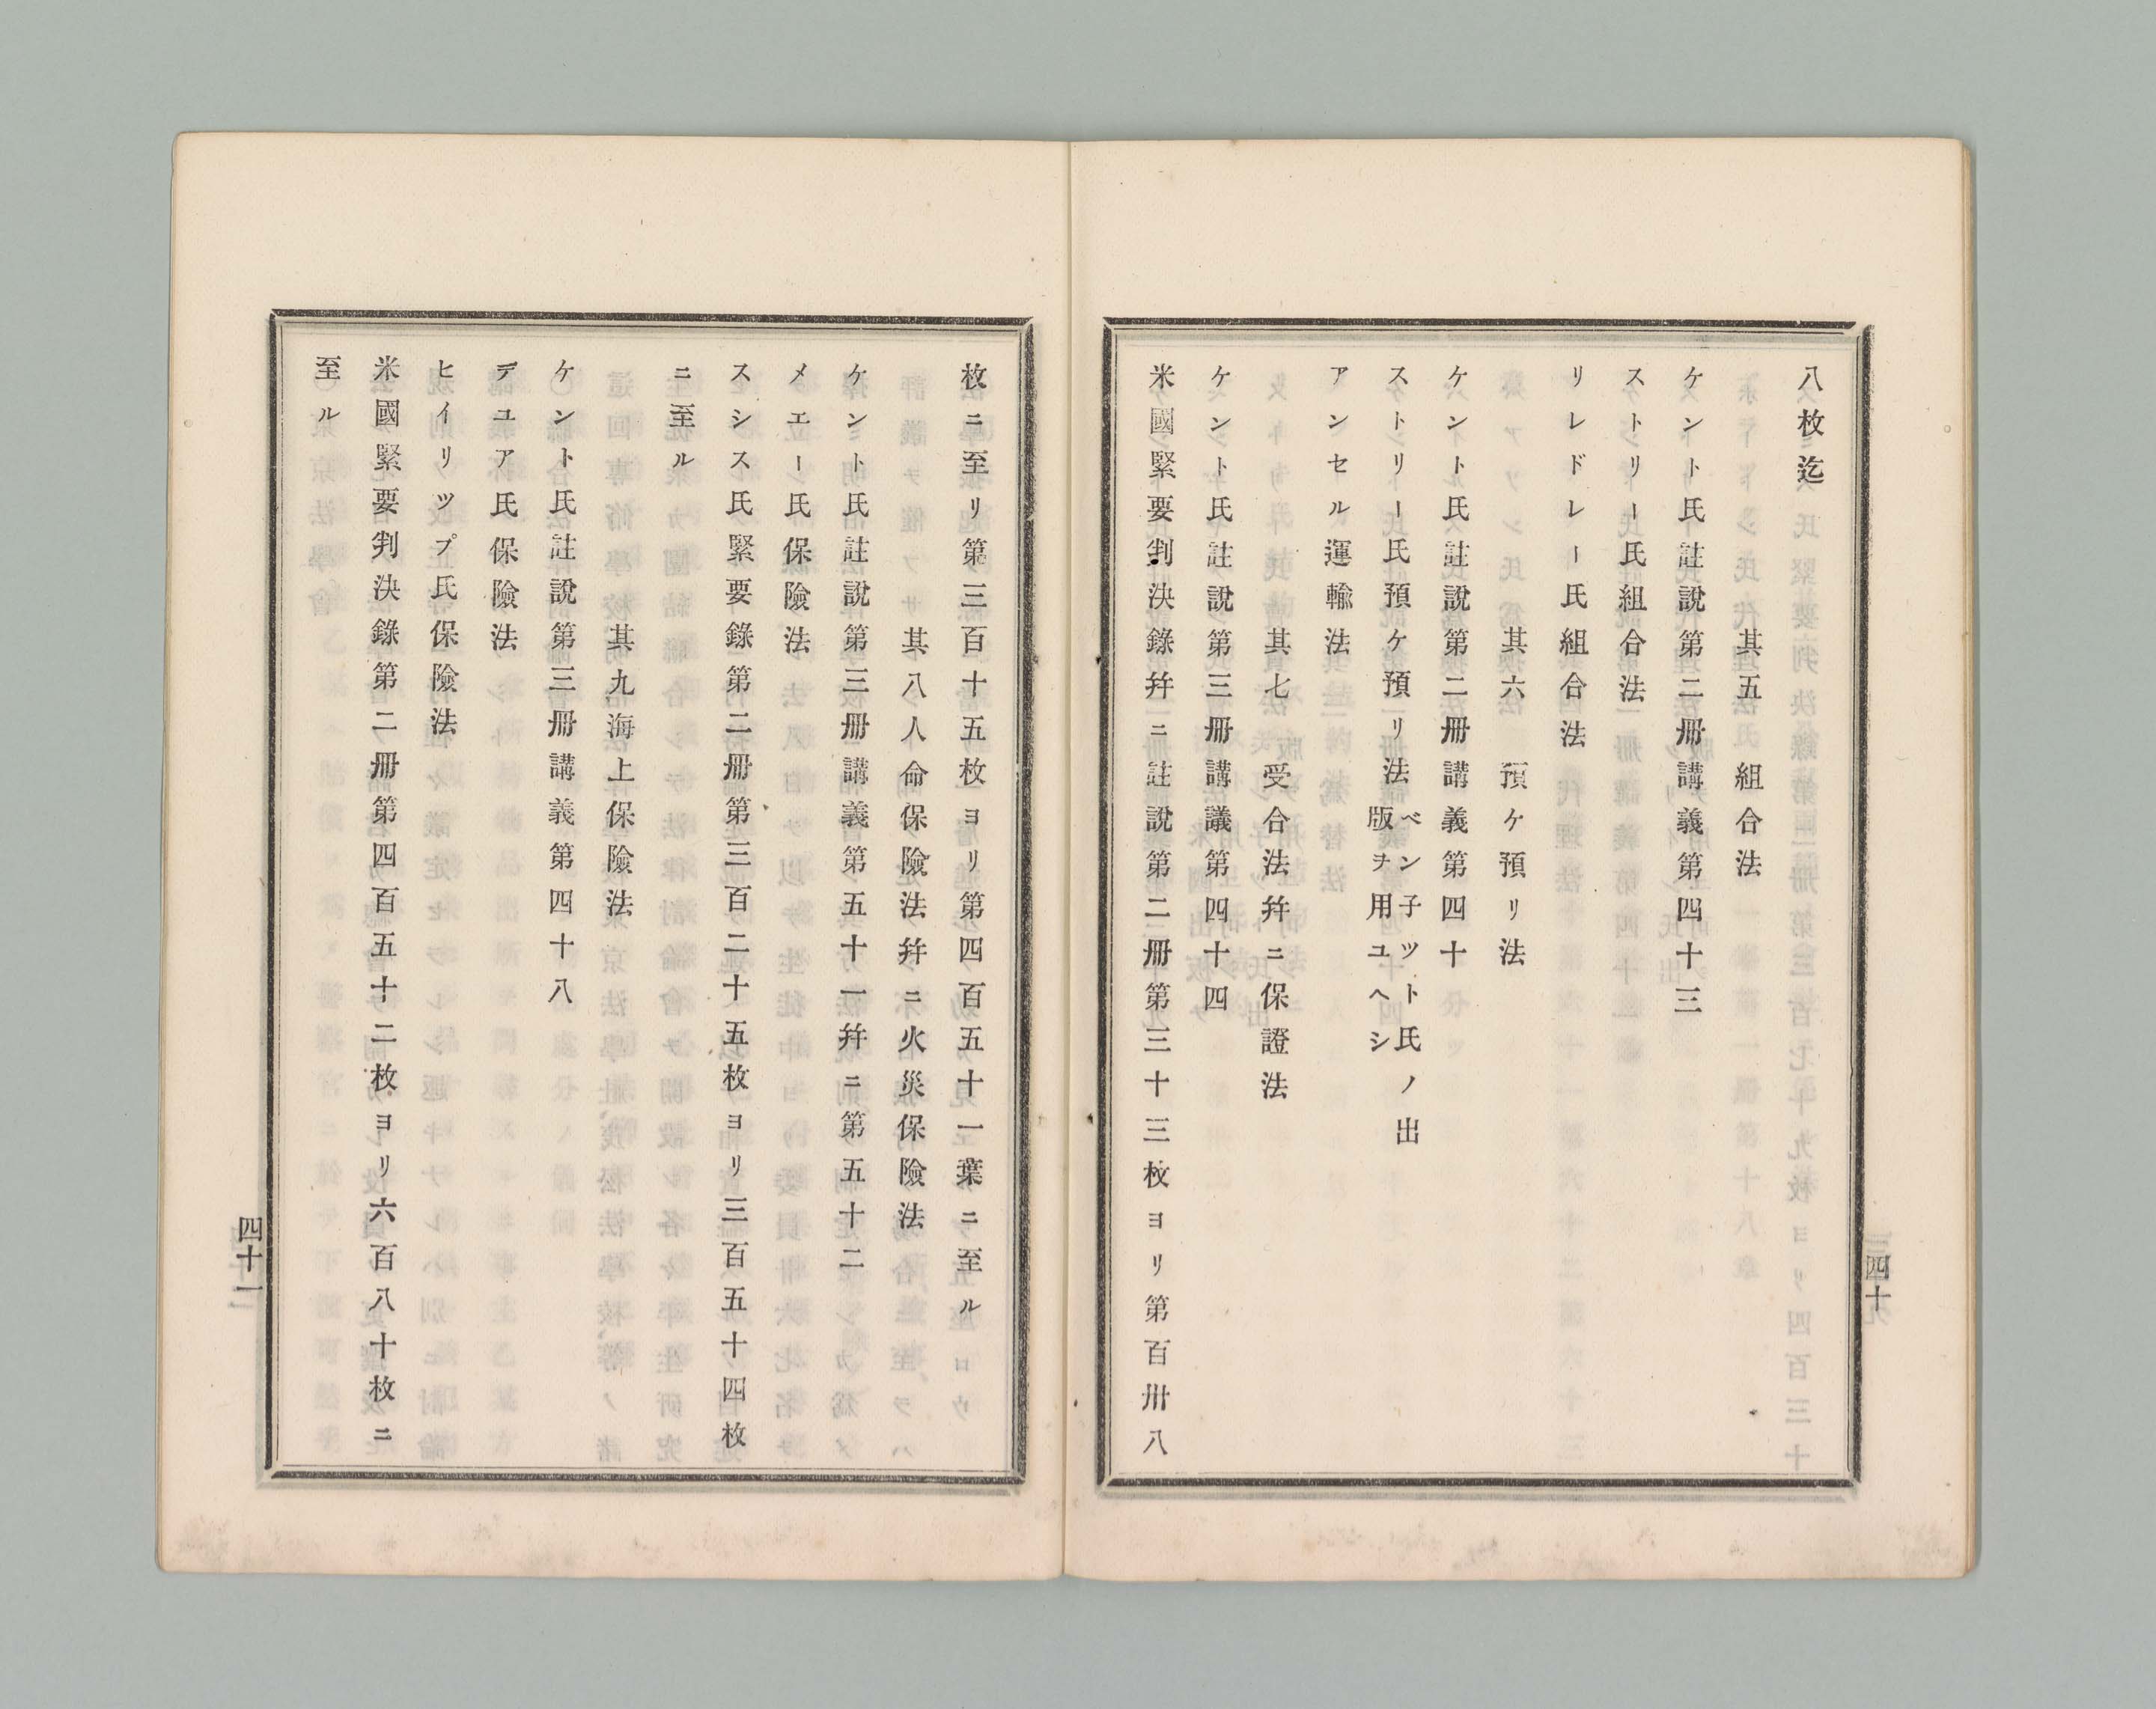 八枚迄
其五　組合法
ケント氏註說第二册講義第四十三
ストリー氏組合法
リレドレー氏組合法
其六　預ケ預リ法
ケント氏註說第二册講義第四十
ストリー氏預ケ預リ法 ベン子ツト氏ノ出版ヲ用ユヘシ
アンセル運輸法
其七　受合法幷ニ保證法
ケント氏註說第三册講議第四十四
米國緊要判決錄幷ニ註說第二册第三十三枚ヨリ第百卅八
四十
枚ニ至リ第三百十五枚ヨリ第四百五十一葉ニ至ル
其八人命保險法幷ニ火災保險法
ケント氏註說第三册講義第五十一幷ニ第五十二
メエー氏保險法
スシス氏緊要錄第二册第三百二十五枚ヨリ三百五十四枚
ニ至ル
其九海上保險法
ケント氏註說第三册講義第四十八
デユア氏保險法
ヒイリツプ氏保險法
米國緊要判決錄第二册第四百五十二枚ヨリ六百八十枚ニ
至ル
四十一